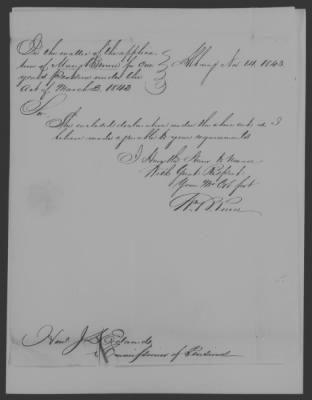 In the matter of the applica-
tion of Mary for One
year's Pension under the
Act of March 3, 1843
Albany Nov 14. 1843
Sir
The enclosed declaration under the above act, is I
believe made agreeable to your requirements
I Have the Honor to
With Great Respect
Your
Hon J. Edwards
Commissioner of Pensions